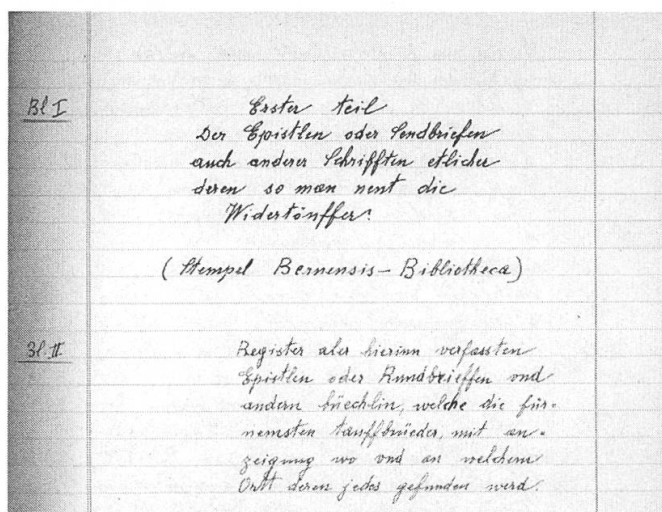 Bl I
Erster teil
Der Epistlen oder Sendbriefen
auch anderer Schrifften etlicher
deren so man nent die
Widertöuffer.
(Stempel Bernensis-Bibliotheca)
Bl. II.
Register aler hierinn verfassten
Epistlen oder Rundbrieffen vnd
andern büechlin, welche die für-
nemsten tauffbrüeder, mit an-
zeigung wo vnd an welchem
Ortt deren jedes gefunden werd.